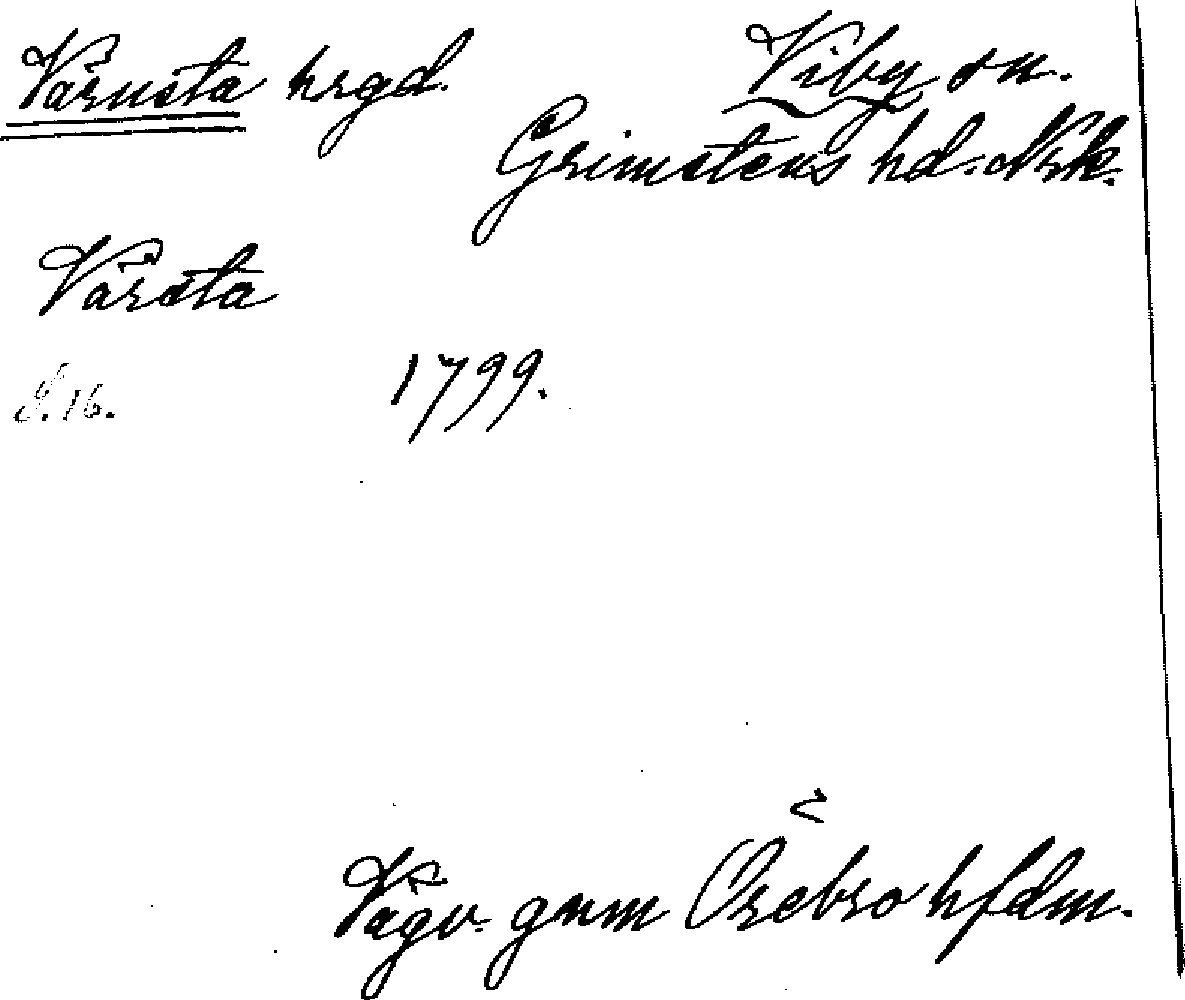 Värnsta hrgd. Viby sn.
Grimstens hd. Nrk.
Värsta
S. 16. 1799.
Vägv. gnm Örebro hfdm.